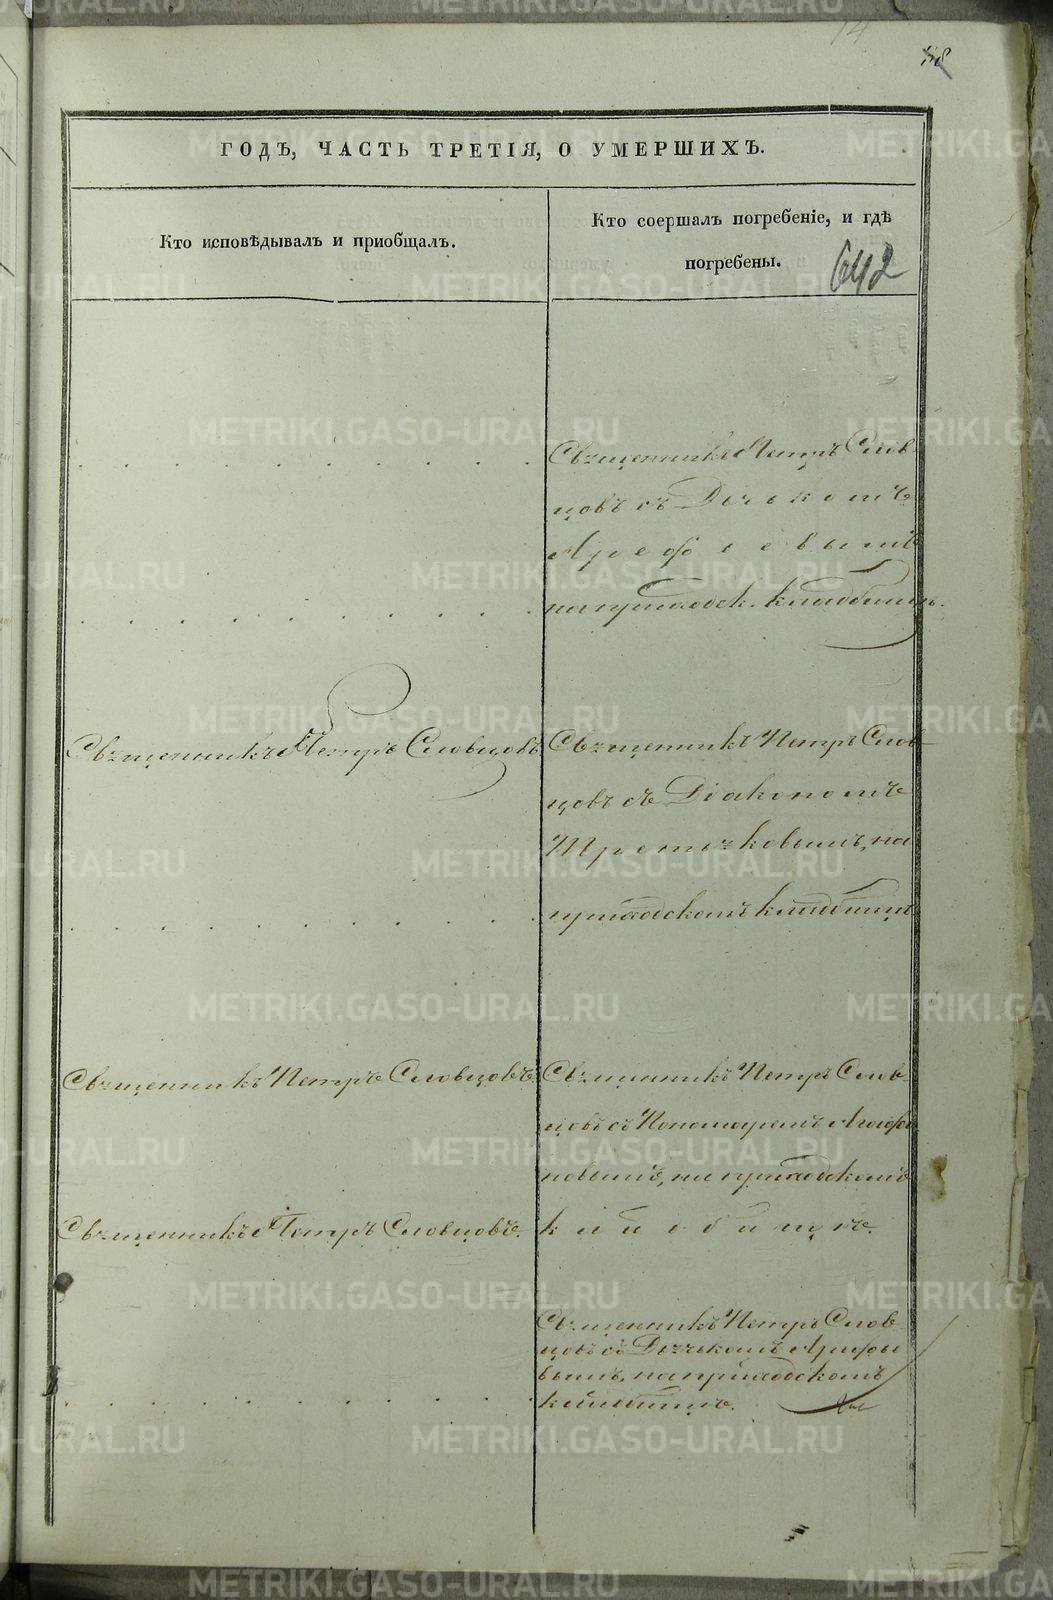 14
ГОДЪ, ЧАСТЬ ТРЕТІЯ, О УМЕРШИХЪ.
Кто исповѣдывалъ и приобщалъ.
Кто соершалъ погребеніе, и гдѣ
погребены. 642
Священникъ Петръ Слов-
цовъ съ Дьячкомъ
Арефіевымъ
на приходск. кладбищѣ.
Священникъ Петръ Словцовъ
Священникъ Петръ Слов-
цовъ съ Діакономъ
Третьяковымъ, на
приходскомъ кладбищѣ
Священникъ Петръ Словцовъ
Священникъ Петръ Слов-
цовъ съ Пономаремъ
новымъ, на приходскомъ
кладбищѣ.
Священникъ Петръ Словцовъ.
Священникъ Петръ Слов-
цовъ съ Дьячкомъ Арефіе
вымъ, на приходскомъ
кладбищѣ.
METRIKI.GASO-URAL.RU